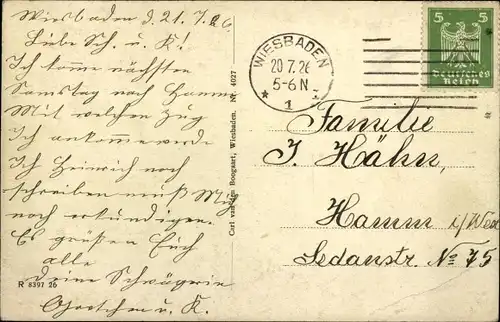 Wiesbaden d. 21.7.26.
Liebe Sch. u. K!
Ich komme nächsten
Samstag nach Hamm
Mit welchem Zug
Ich ankomme werde
Ich Heinrich noch
schreiben muß Mich
noch erkundigen.
Es grüßen Euch
alle
deine Schwägerin
Gretchen u. K.
R 8391 26
Carl van den Boogaart, Wiesbaden. Nr. 4027
WIESBADEN
20.7.26
5-6 N
* 1
5 5
Deutsches
Reich
Familie
J. Hähn,
Hamm i/Wes
Sedanstr. No 75